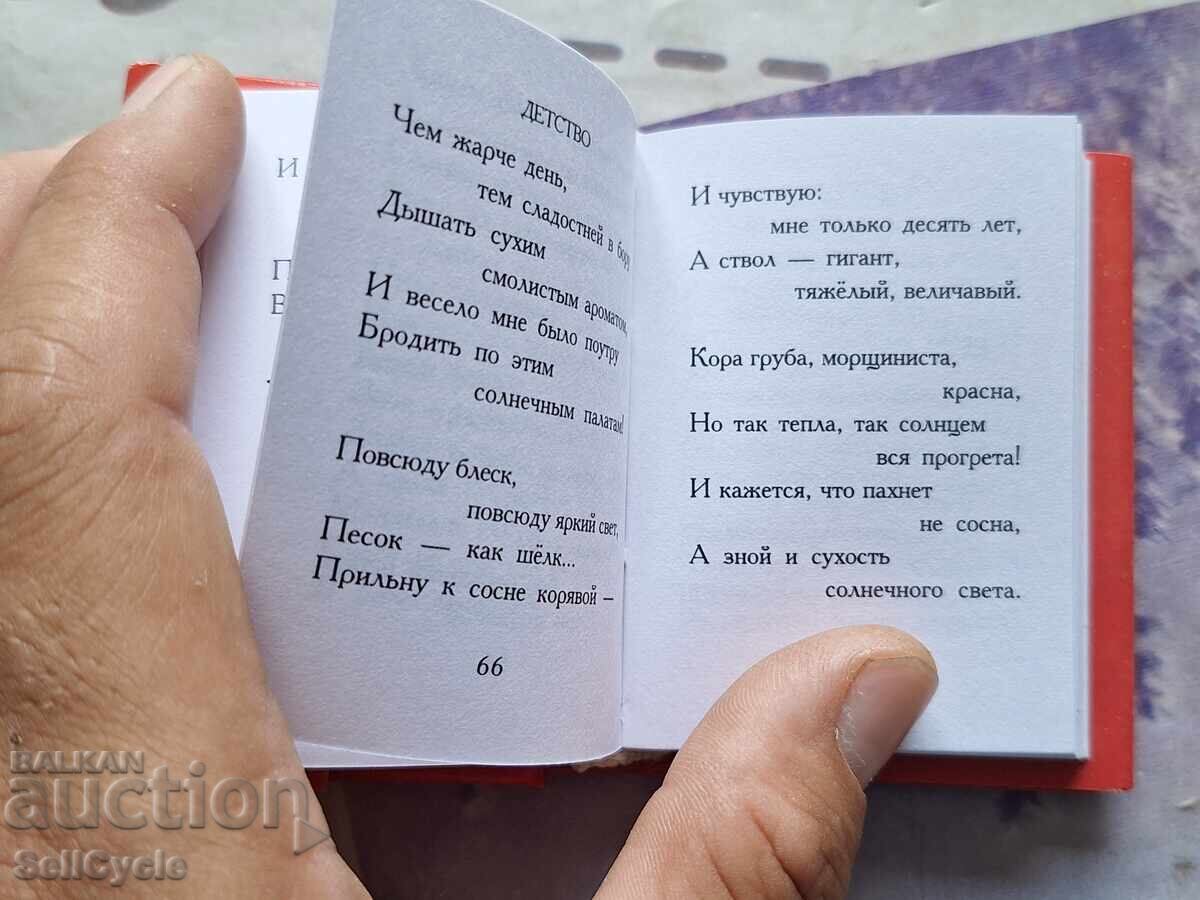 И
П
В
ДЕТСТВО
Чем жарче день,
тем сладостней в бору
Дышать сухим
смолистым ароматом,
И весело мне было поутру
Бродить по этим
солнечным палатам!
Повсюду блеск,
повсюду яркий свет,
Песок — как шёлк...
Прильну к сосне корявой –
66
И чувствую:
мне только десять лет,
А ствол — гигант,
тяжёлый, величавый.
Кора груба, морщиниста,
красна,
Но так тепла, так солнцем
вся прогрета!
И кажется, что пахнет
не сосна,
А зной и сухость
солнечного света.
BALKAN
auction
SellCycle